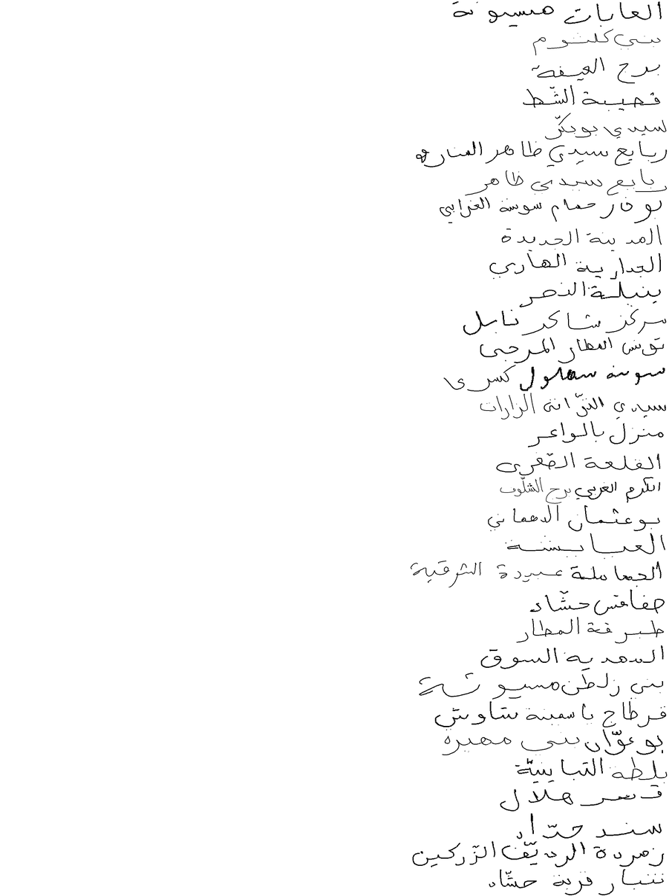 الغابات ميسيوتة
بني كلثوم
برج العيفة
قصيبة الشّط
سيدي بوبكّر
ربايع سيدي ظاهر المنارة
ربايع سيدي ظاهر
بوفار حمام سوسة الغرابي
المدينة الجديدة
الجدارية الهاري
ينبلة النصر
مركز شاكر نابل
تونس المطار المرجى
سوسة سهلول كسرى
سيدي التوّاتي الزارات
منزل بالواعر
القلعة الصّغرى
الكرم الغربي برج الشلوف
بوعثمان الدهماني
العبابسة
الجماملة عبيدة الشرقية
صفاقس حشّاد
طبرقة المطار
السعدية السوق
بني زلطن مسيوتة
قرطاج ياسمينة شاوش
بوعوّان بني مهيرة
بلطة التباينيّة
قصر هلال
سند حدّاد
زمردة الرديّف الزّركين
ننبار قرية حشّاد